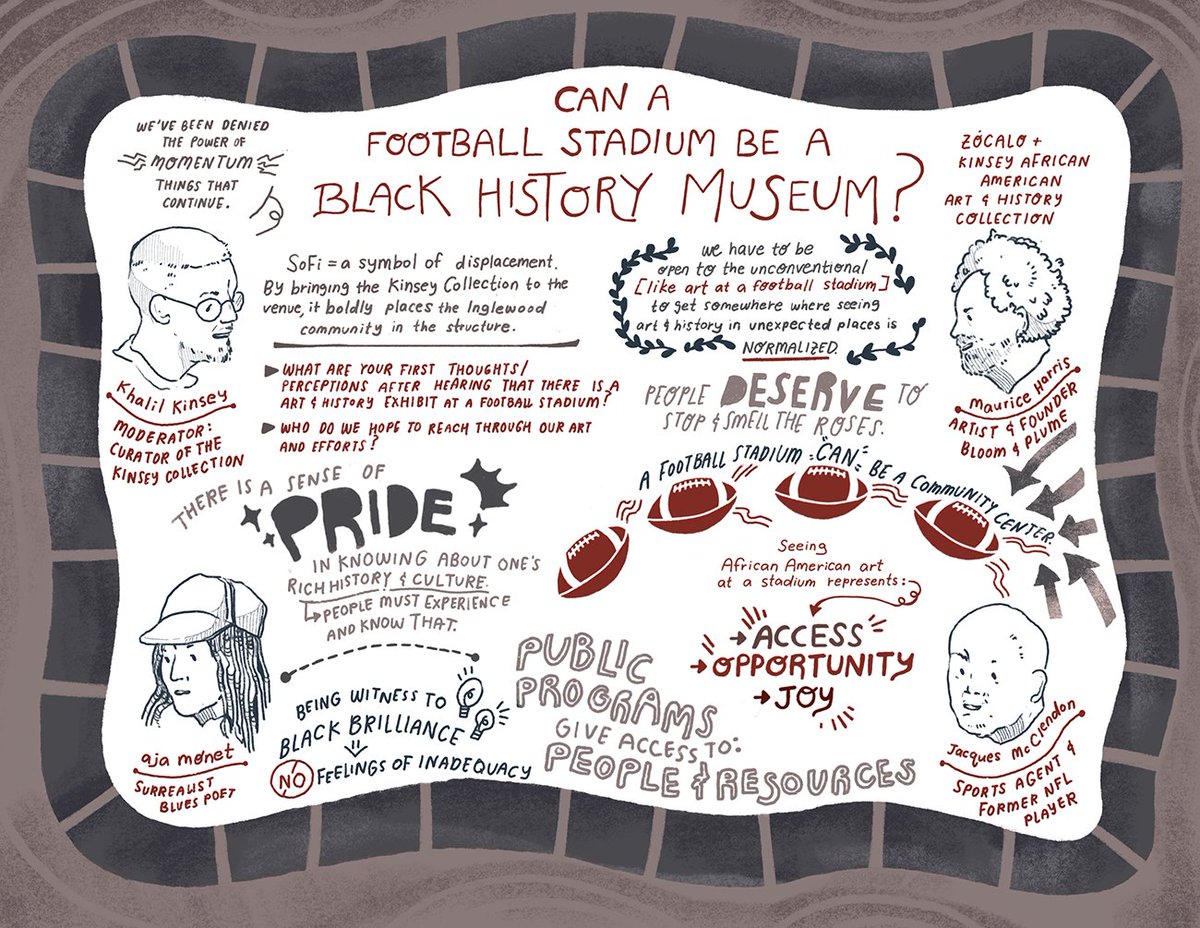 CAN A
FOOTBALL STADIUM BE A
BLACK HISTORY MUSEUM?
WE'VE BEEN DENIED
THE POWER OF
MOMENTUM
THINGS THAT
CONTINUE.
ZÓCALO +
KINSEY AFRICAN
AMERICAN
ART & HISTORY
COLLECTION
Khalil Kinsey
MODERATOR:
CURATOR OF THE
KINSEY COLLECTION
SoFi = a symbol of displacement.
By bringing the Kinsey Collection to the
venue, it boldly places the Inglewood
community in the structure.
WHAT ARE YOUR FIRST THOUGHTS/
PERCEPTIONS AFTER HEARING THAT THERE IS A
ART & HISTORY EXHIBIT AT A FOOTBALL STADIUM?
WHO DO WE HOPE TO REACH THROUGH OUR ART
AND EFFORTS?
we have to be
open to the unconventional
[like art at a football stadium]
to get somewhere where seeing
art & history in unexpected places is
NORMALIZED.
PEOPLE DESERVE TO
STOP & SMELL THE ROSES.
Maurice Harris
ARTIST & FOUNDER
BLOOM & PLUME
A FOOTBALL STADIUM "CAN" BE A COMMUNITY CENTER.
THERE IS A SENSE OF
PRIDE
IN KNOWING ABOUT ONE'S
RICH HISTORY & CULTURE.
PEOPLE MUST EXPERIENCE
AND KNOW THAT.
Seeing
African American art
at a stadium represents:
ACCESS
OPPORTUNITY
JOY
aja monet
SURREALIST
BLUES POET
BEING WITNESS TO
BLACK BRILLIANCE
NO FEELINGS OF INADEQUACY
PUBLIC
PROGRAMS
GIVE ACCESS TO:
PEOPLE & RESOURCES
Jacques McClendon
SPORTS AGENT &
FORMER NFL
PLAYER